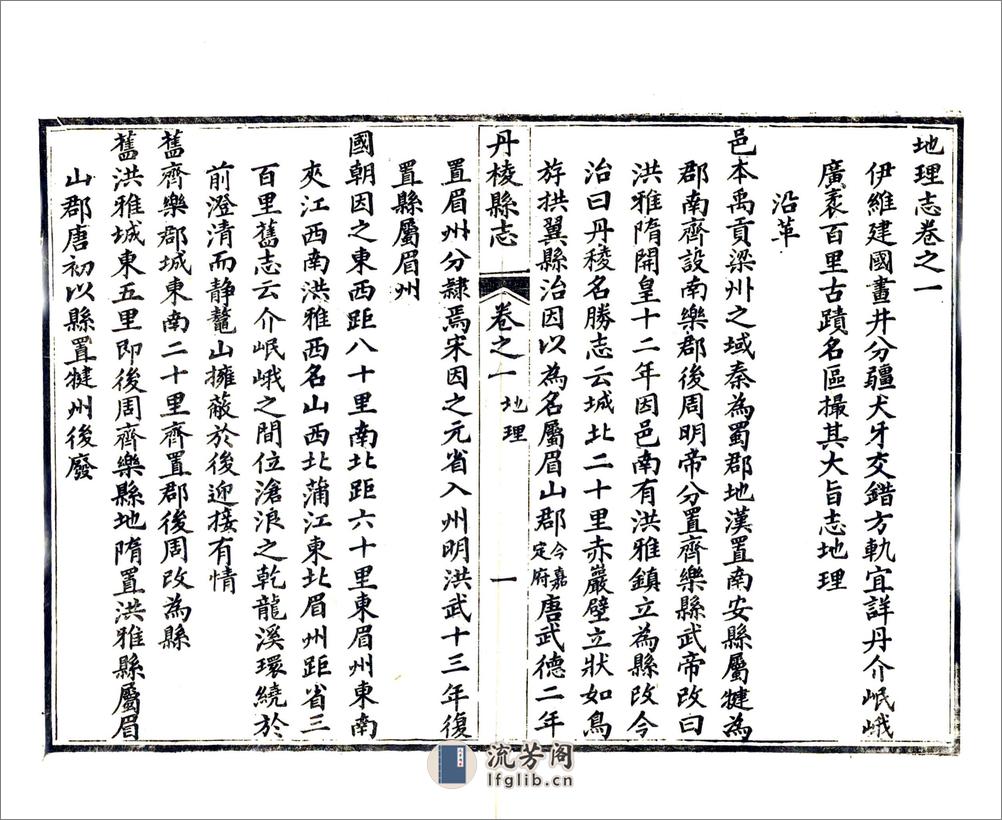 地理志卷之一
伊維建國畫井分疆犬牙交錯方軌宜詳丹介岷峨
廣袤百里古蹟名區撮其大旨志地理
沿革
邑本禹貢梁州之域秦為蜀郡地漢置南安縣屬犍為
郡南齊設南樂郡後周明帝分置齊樂縣武帝改曰
洪雅隋開皇十二年因邑南有洪雅鎮立為縣改今
治曰丹稜名勝志云城北二十里赤巖壁立狀如鳥
斿拱翼縣治因以為名屬眉山郡今嘉定府唐武德二年
丹棱縣志 卷之一 地理 一
置眉州分隸焉宋因之元省入州明洪武十三年復
置縣屬眉州
國朝因之東西距八十里南北距六十里東眉州東南
夾江西南洪雅西名山西北蒲江東北眉州距省三
百里舊志云介岷峨之間位滄浪之乾龍溪環繞於
前澄清而静鼇山擁蔽於後迎接有情
舊齊樂郡城東南二十里齊置郡後周改為縣
舊洪雅城東五里即後周齊樂縣地隋置洪雅縣屬眉
山郡唐初以縣置犍州後廢
流芳阁
lfglib.cn